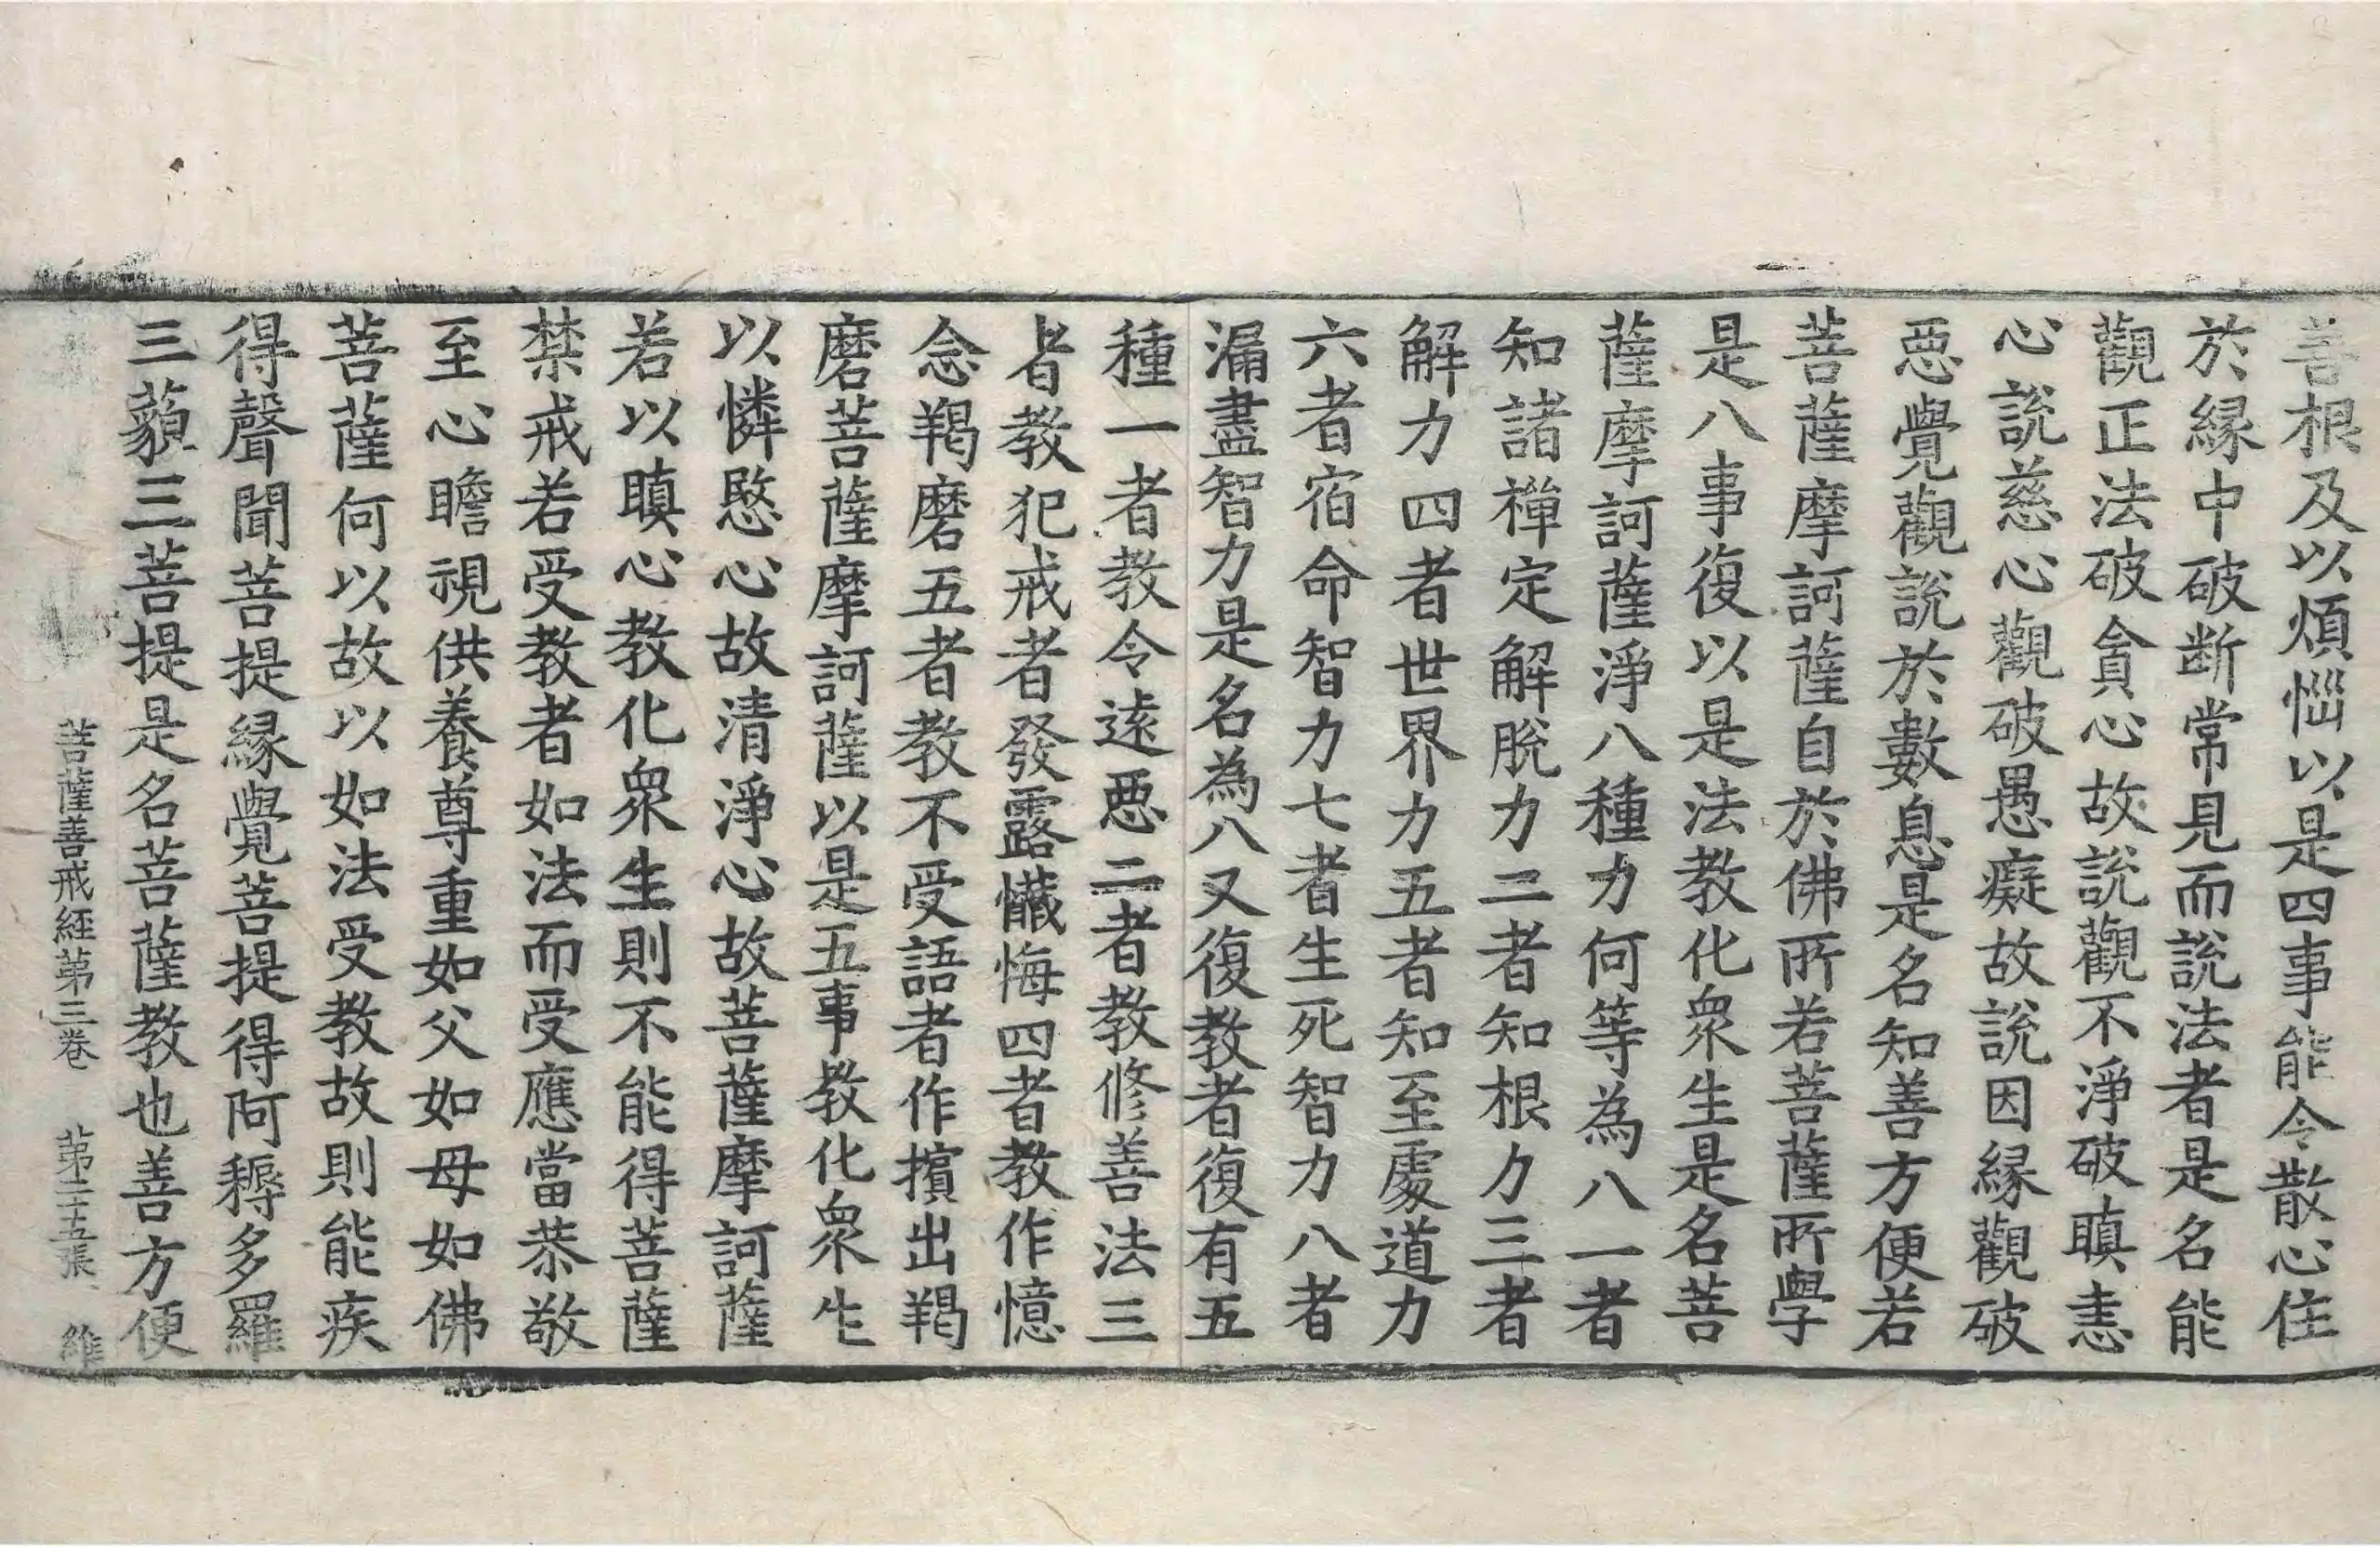 善根及以煩惱以是四事能令散心住
於縁中破断常見而說法者是名能
觀正法破貪心故說觀不淨破瞋恚
心說慈心觀破愚癡故說因縁觀破
惡覺觀說於數息是名知善方便若
菩薩摩訶薩自於佛所若菩薩所學
是八事復以是法教化衆生是名菩
薩摩訶薩淨八種力何等為八一者
知諸禪定解脫力二者知根力三者
解力四者世界力五者知至處道力
六者宿命智力七者生死智力八者
漏盡智力是名為八又復教者復有五
種一者教令逺惡二者教修善法三
者教犯戒者發露懺悔四者教作憶
念羯磨五者教不受語者作擯出羯
磨菩薩摩訶薩以是五事教化衆生
以憐愍心故清淨心故菩薩摩訶薩
若以瞋心教化衆生則不能得菩薩
禁戒若受教者如法而受應當恭敬
至心瞻視供養尊重如父如母如佛
菩薩何以故以如法受教故則能疾
得聲聞菩提縁覺菩提得阿耨多羅
三藐三菩提是名菩薩教也善方便
菩薩善戒經第三卷 第二十五張 維